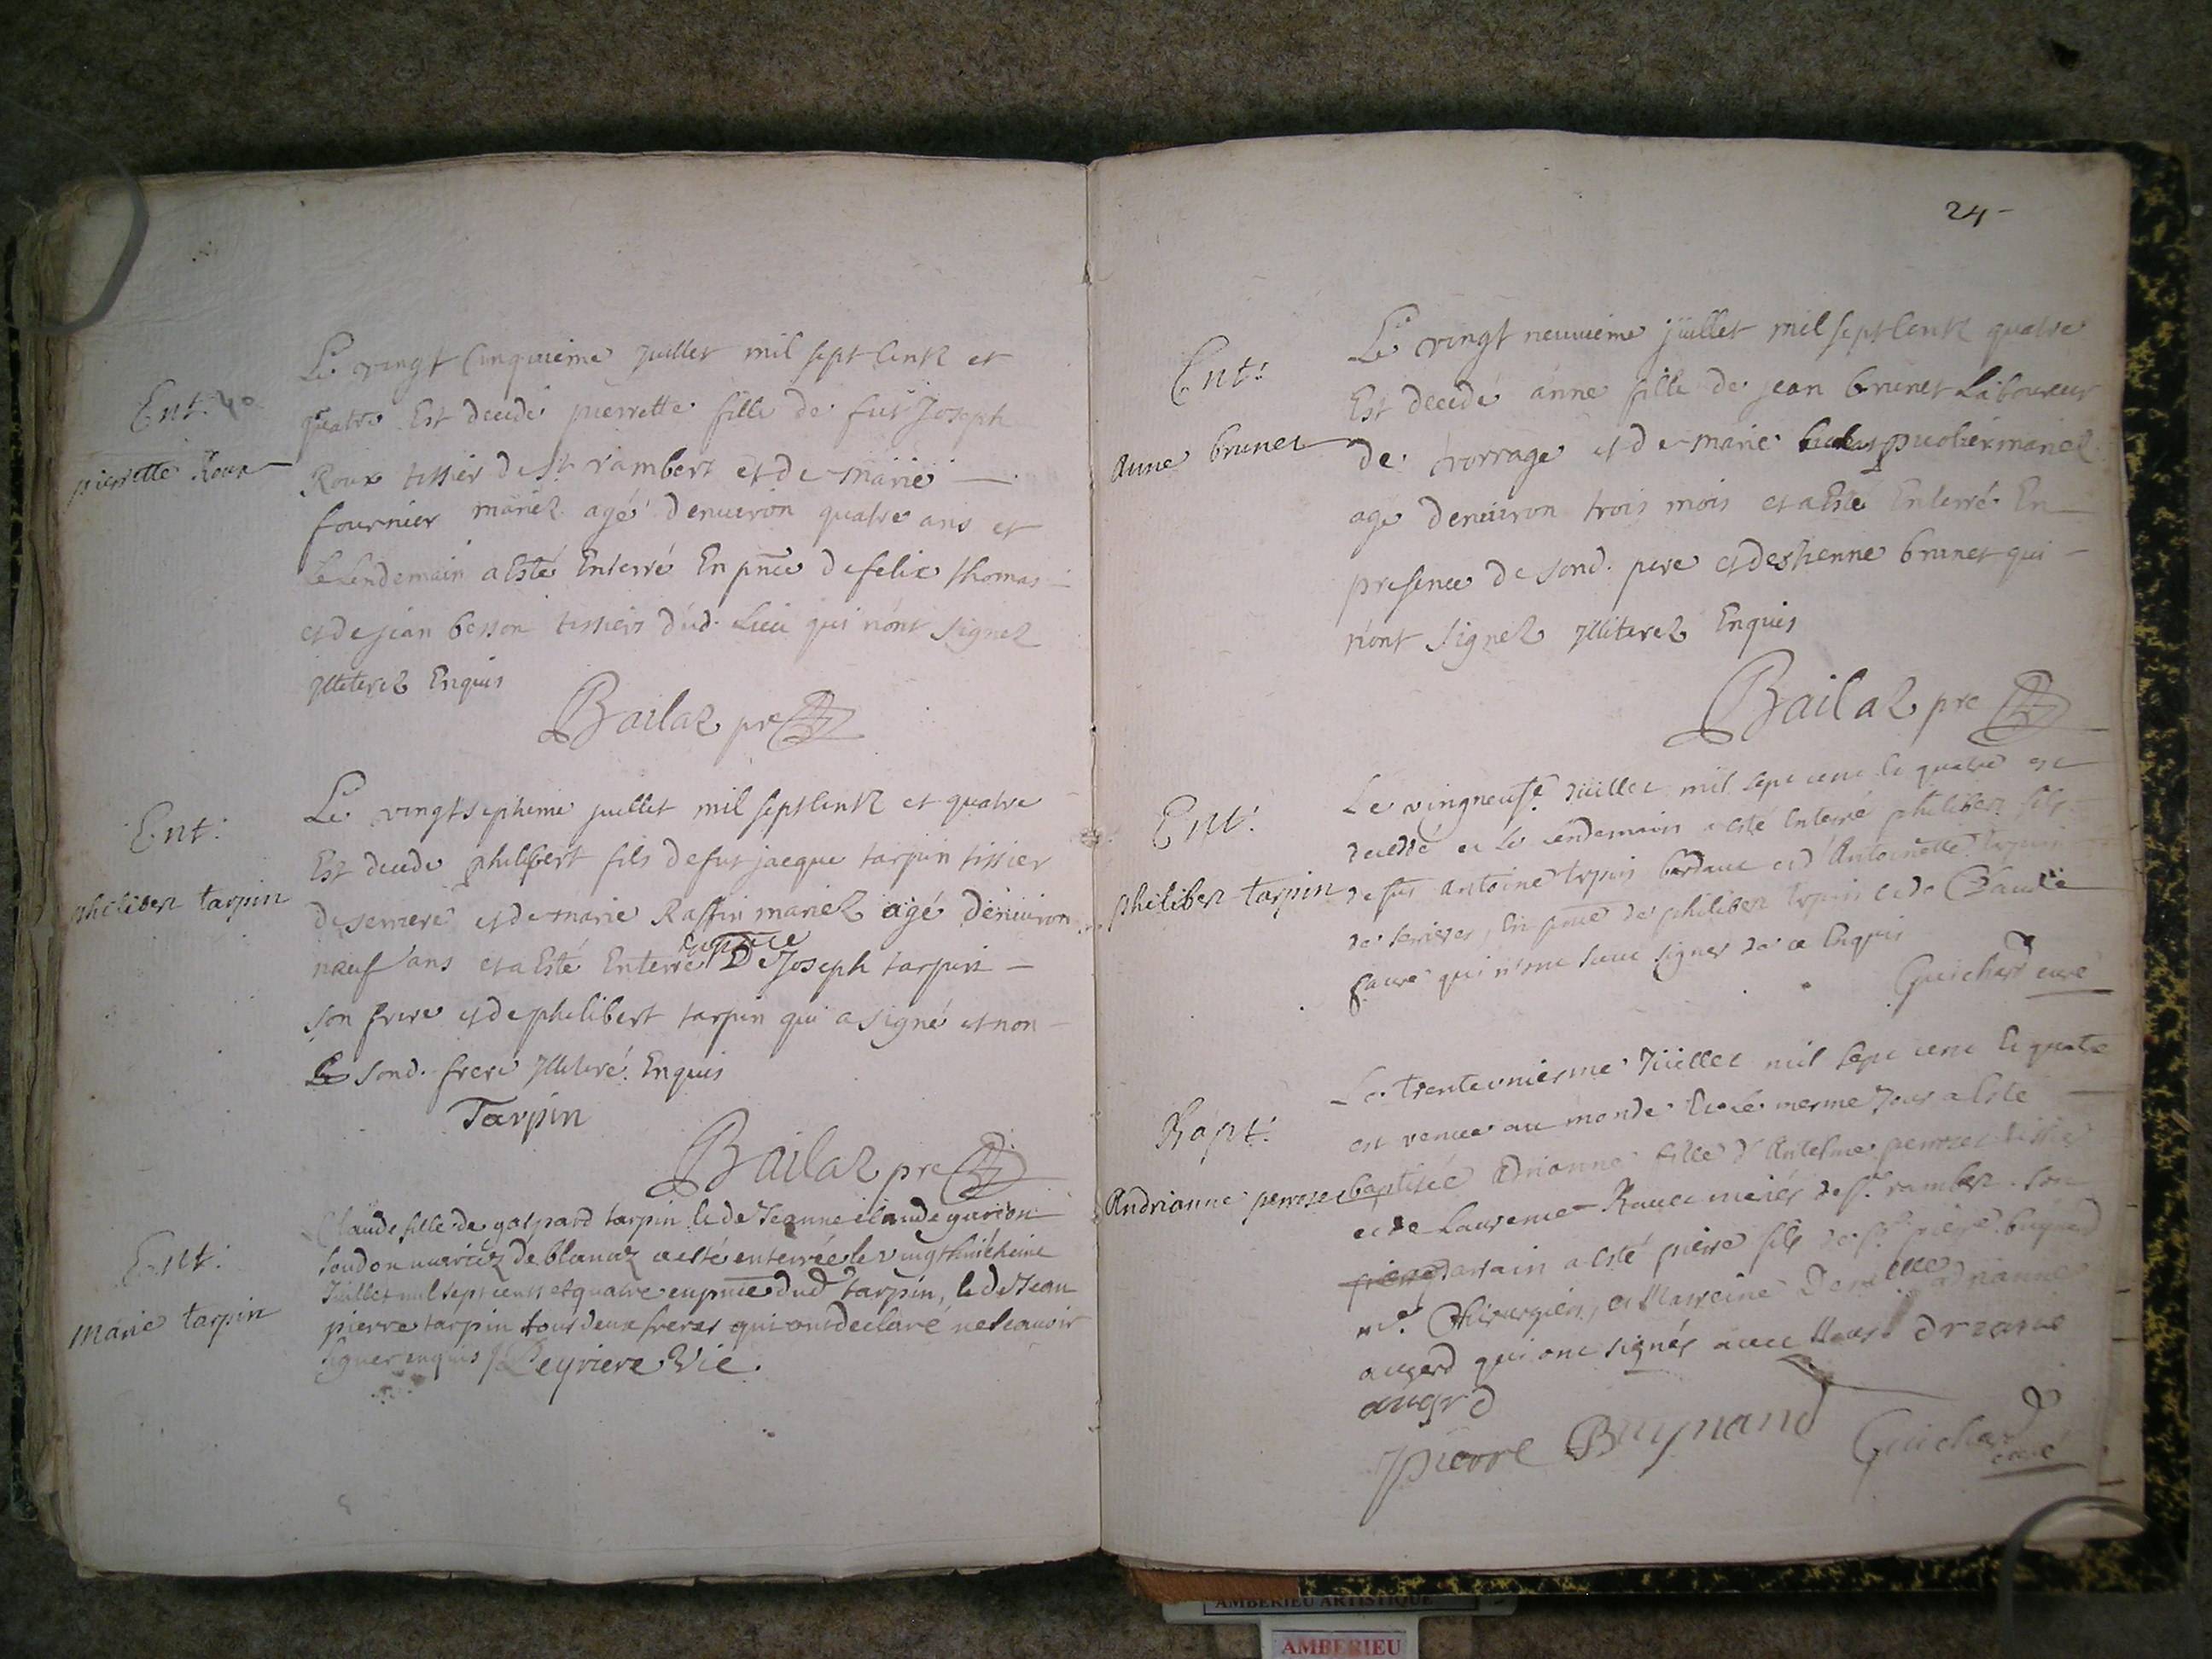 Ent.
pierrette Roux
Le vingt cinquieme juillet mil sept centz et
quatre Est decedé pierrette fille de fut Joseph
Roux tissier de St rambert et de marie —
fournier mariez agé denuiron quatre ans et
Le Lendemain a Esté Enterré En pnce de felix thomas
et de jean besson tissiers dud. Lieu qui n'ont signez
Illiterez Enquis
Bailaz pre
Ent:
philibert tarpin
Le vingtseptieme juillet mil septcentz et quatre
Est decede philibert fils de fut jacque tarpin tissier
de serriere et de marie Raffin mariez agé denuiron
neuf ans et a Esté Enterré En pnce De Joseph tarpin —
son frere et de philibert tarpin qui a signé et non
sond. frere Illiteré. Enquis
Tarpin
Bailaz pre
Ent:
Marie tarpin
Claude fille de gaspard tarpin et de Jeanne claude
de blanaz a esté enterrée le vingthuictieme
Juillet mil sept cents et quatre en pnce dud tarpin, et de Jean
pierre tarpin tous deux freres qui ont declaré ne scauoir
signer enquis Leyriere Vic.
24
Ent:
Anne brunet
Le vingt neuuieme juillet mil sept centz quatre
Est decedé anne fille de jean brunet Laboureur
de et de marie mariez
agé denuiron trois mois et a Esté Enterré En
presence de sond. pere et destienne brunet qui
n'ont signez Illiterez Enquis
Bailaz pre
Ent:
philibert tarpin
Le vingneufe Juillet mil sept cent et quatre est
decedé et le Lendemain a esté Enterré philibert fils
de fut antoine trpin et d'Antoinette trpin
de serrieres, En pnce de philibert trpin et de Claude
faure qui n'ont sceu signer de ce Enquis
Guichard curé
Bapt:
Andrianne perrozet
Le trenteuniesme Juillet mil sept cent et quatre
est venue au monde et le mesme Jour a Esté
baptisée Adrianne fille d'Antelme perrozet tissier
et de Laurence Rouet mariés de St rambert. son
parrain a esté pierre fils de Sr pierre buynand
me. Chirurgien, et Marreine Demlle adrianne
augerd qui ont signés auec Nous drianne
augrd
Pierre Buynand
Guichard curé
AMBERIEU ARTISTIQUE
AMBERIEU